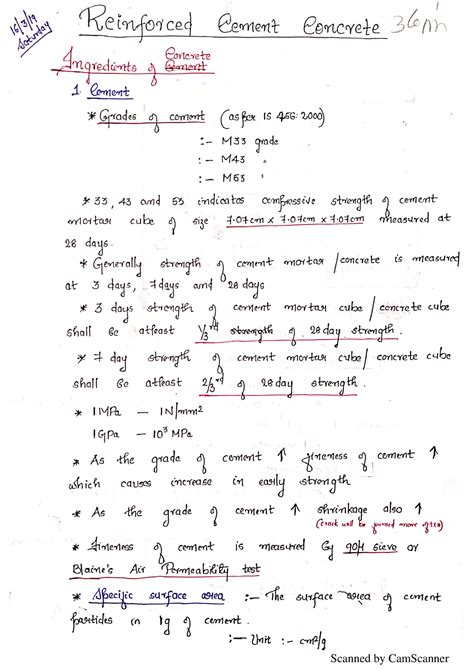 16/3/19
Saturday
Reinforced Cement Concrete
Concrete
Ingredients of Cement
1. Cement
* Grades of cement (as per IS 456:2000)
:- M33 grade
:- M43 "
:- M53 "
* 33, 43 and 53 indicates compressive strength of cement
mortar cube of size 7.07cm x 7.07cm x 7.07cm measured at
28 days.
* Generally strength of cement mortar/concrete is measured
at 3 days, 7days and 28 days
* 3 days strength of cement mortar cube/concrete cube
shall be atleast 1/3rd strength of 28 day strength.
* 7 day strength of cement mortar cube/concrete cube
shall be atleast 2/3rd of 28 day strength.
* 1MPa — 1N/mm²
1GPa — 10³ MPa
* As the grade of cement ↑ fineness of cement ↑
which causes increase in early strength
* As the grade of cement ↑ shrinkage also ↑
(crack will be formed more often)
* Fineness of cement is measured by 90μ sieve or
Blaine's Air Permeability test
* Specific surface area :- The surface area of cement
particles in 1g of cement.
:- Unit :- cm²/g
Scanned by CamScanner